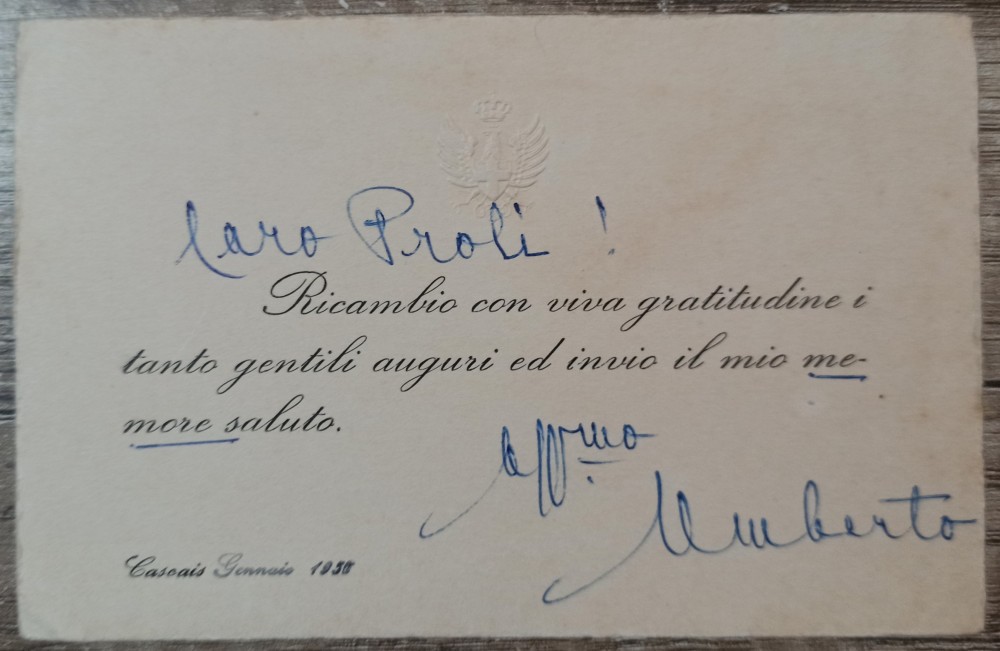 Caro Proli !
Ricambio con viva gratitudine i
tanto gentili auguri ed invio il mio me-
more saluto.
aff.mo
Umberto
Cascais Gennaio